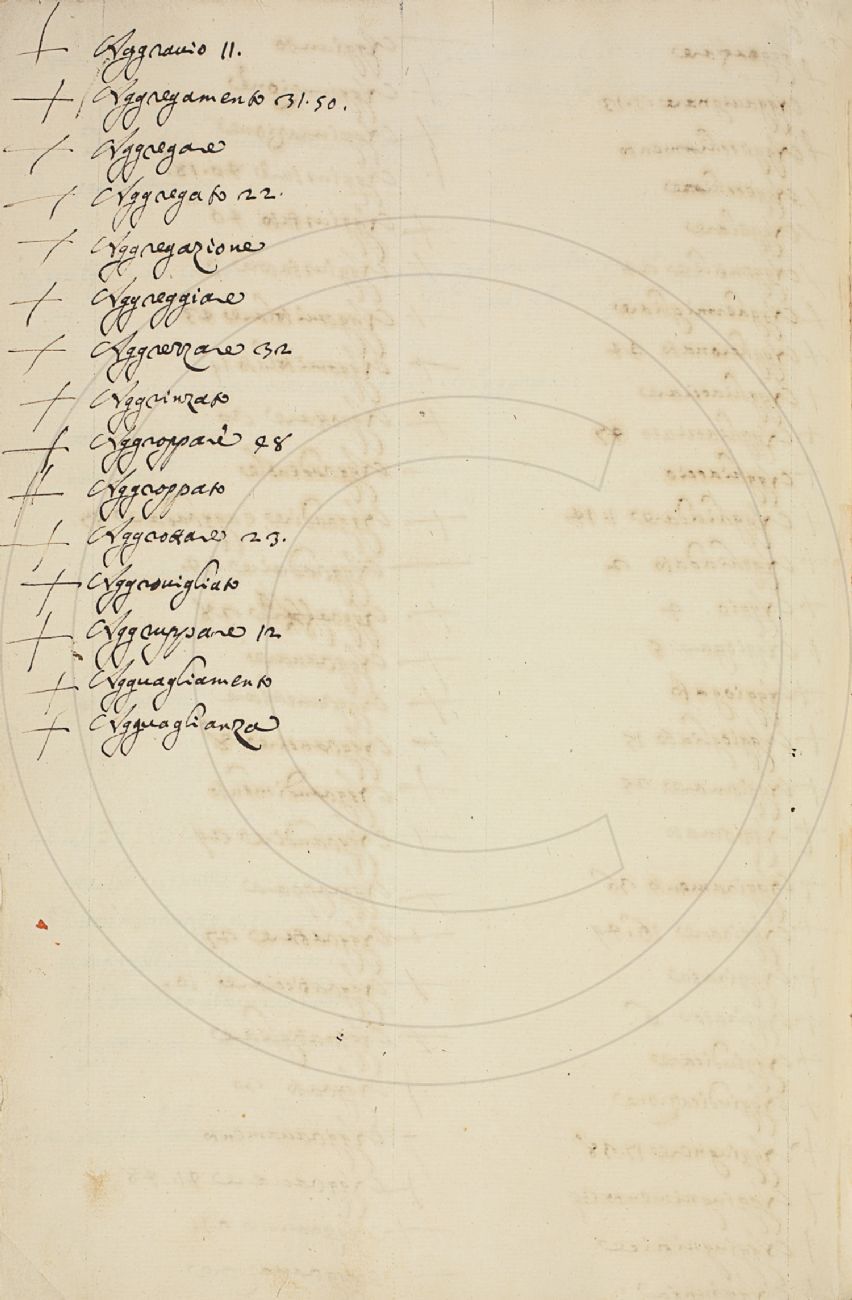 Aggrauio 11.
Aggregamento 31.50.
Aggregare
Aggregato 22.
Aggregazione
Aggreggiare
Aggrezzare 32
Aggrinzato
Aggroppare 48
Aggroppato
Aggrottare 23.
Aggrouigliato
Aggruppare 12
Agguagliamento
Agguaglianza